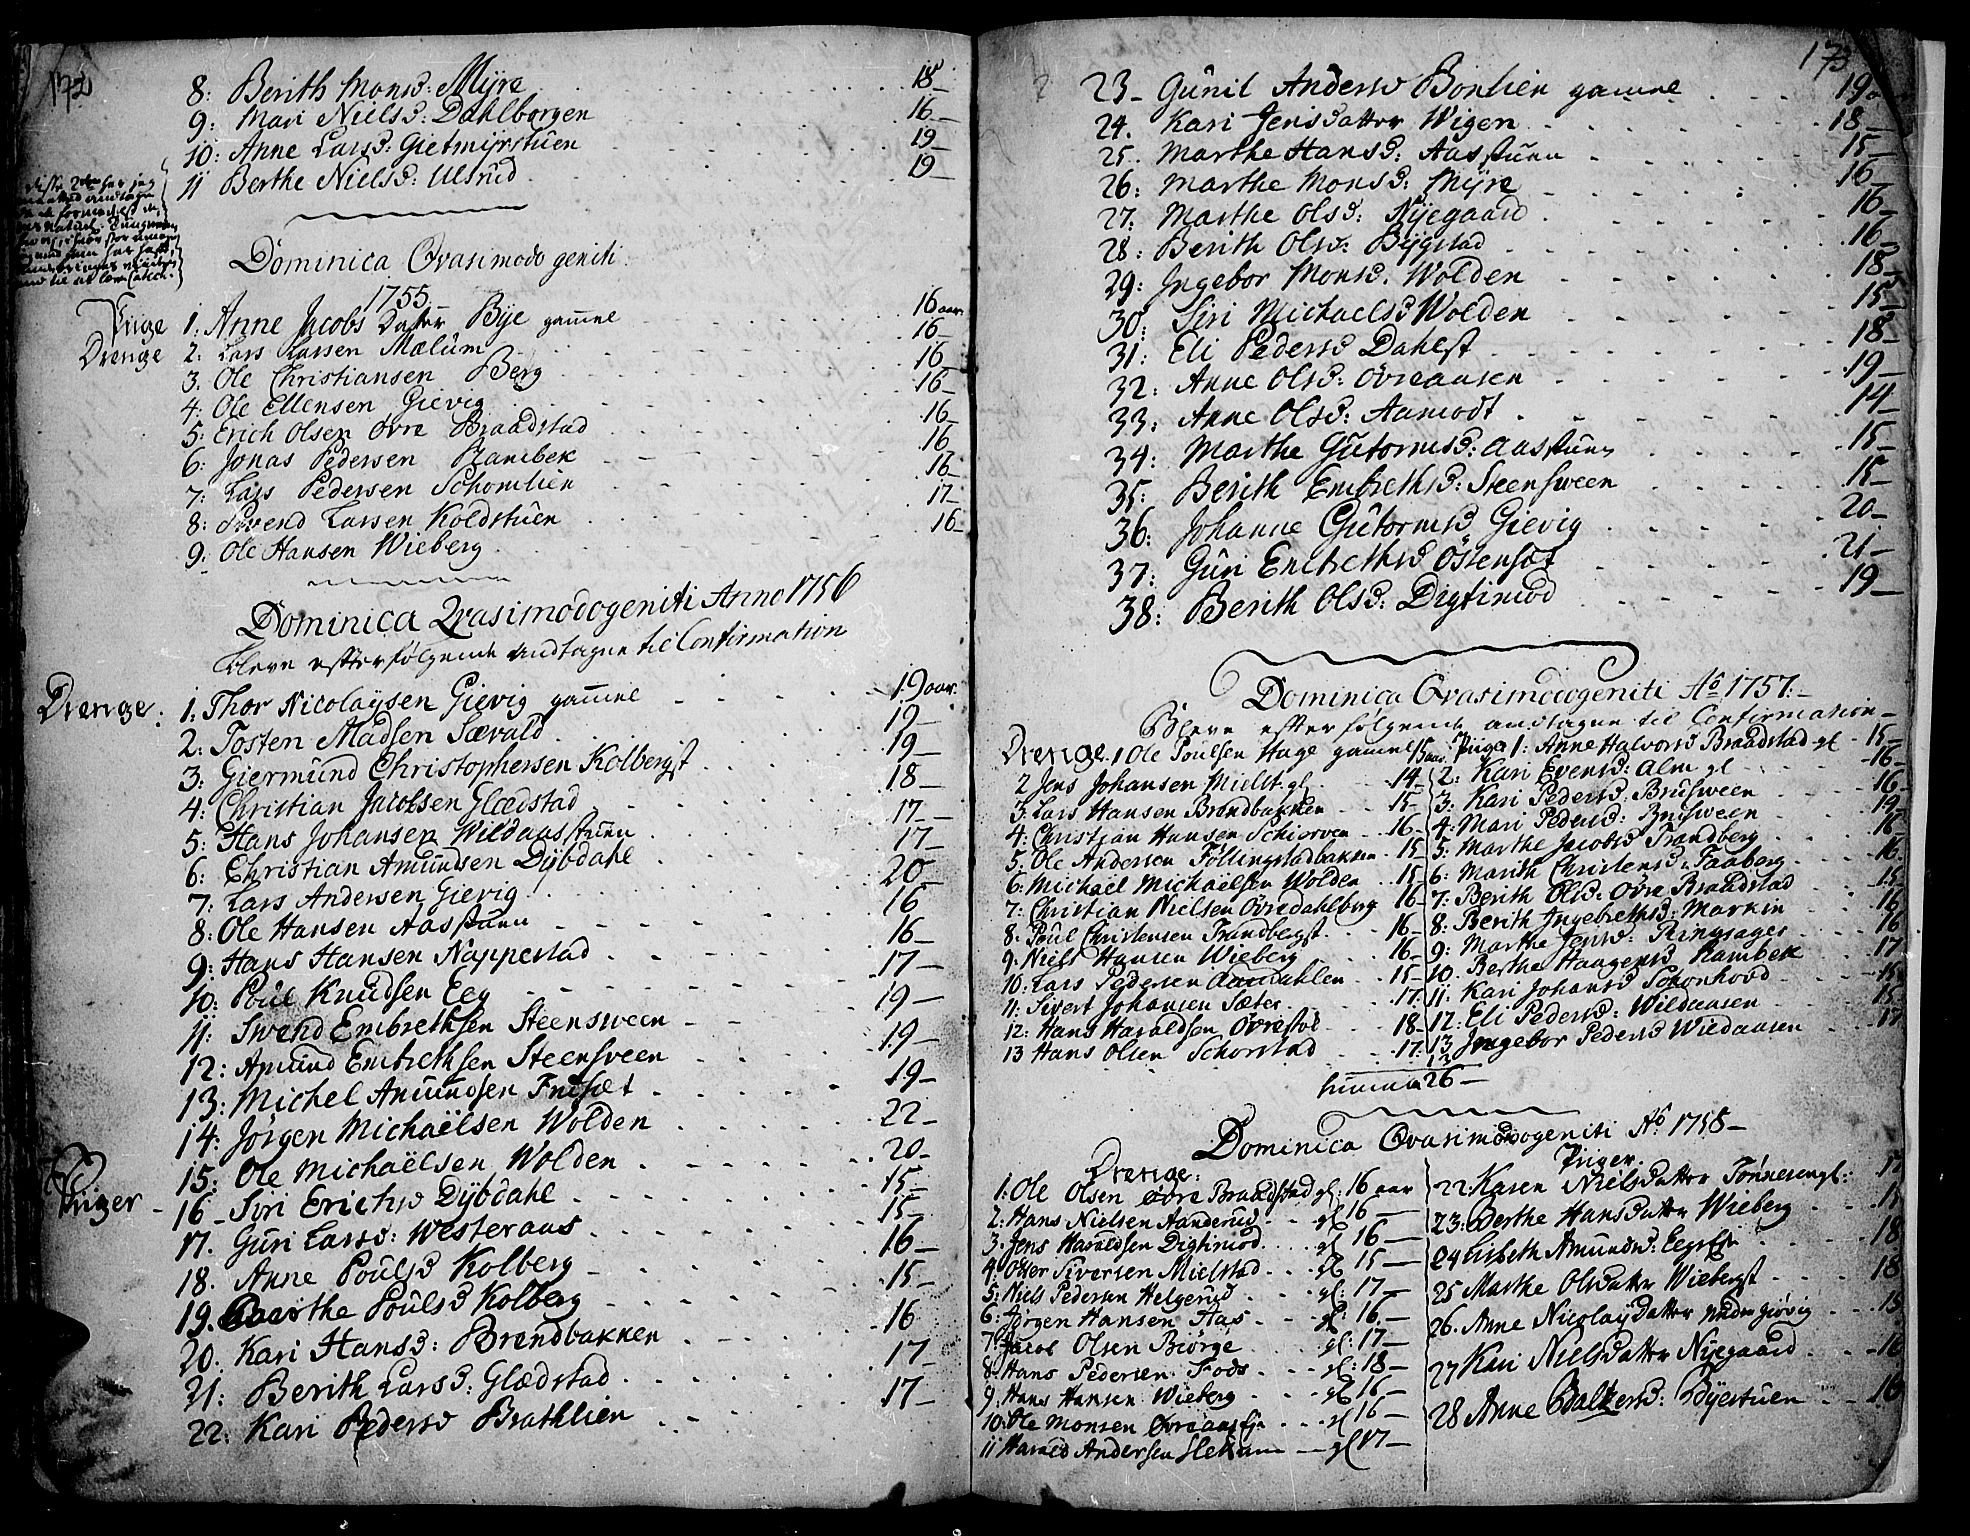 172
8: Berith Monsd: Myre 18-
9: Mari Nielsd: Dahlborgen 16-
10: Anne Larsd: Gietmyrstuen 19-
11 Berthe Nielsd: Ulsrud 19-
Dominica Qvasimodo geniti
1755
Piige 1. Anne Jacobs Datter Bye gamel 16 aar
Drenge 2: Lars Larsen Mælum 16-
3. Ole Christiansen Berg 16
4: Ole Ellensen Gievig 16-
5: Erich Olsen Øvre Braadstad 16-
6: Jonas Pedersen Rambek 16
7: Lars Pedersen Schomlien 16-
8: Svend Larsen Koldstuen 17-
9: Ole Hansen Wieberg 16-
Dominica Qvasimodogeniti Anno 1756
bleve effterfølgende andtagne til Confirmation
Drenge: 1: Thor Nicolaysen Gievig gamel 19 aar
2: Tosten Madsen Sævald 19-
3: Giermund Christophersen Kolbergst 19-
4: Christian Jacobsen Glædstad 18-
5: Hans Johansen Wildaasstuen 17-
6: Christian Amundsen Dybdahl 17-
7: Lars Andersen Gievig 20-
8: Ole Hansen Aasstuen 16
9: Hans Hansen Nappestad 16-
10: Poul Knudsen Eeg 17-
11: Swend Embrethsen Steensween 19-
12: Amund Embrethsen Steensveen 19-
13: Michel Amundsen Fndsæt 19-
14: Jørgen Michaëlsen Wolden 22-
15: Ole Michaëlsen Wolden 20-
Piiger - 16 - Siri Erichsd Dybdahl 15-
17. Guri Larsd: Westeraas 15-
18. Anne Poulsd Kolberg 16-
19. Marthe Poulsd Kolberg 15-
20. Kari Hansd: Brendbakken 16
21: Berith Larsd: Glædstad 17-
22: Kari Pedersd Brathlien 17-
173
23- Gunil Andersd Bonlien gamel 19
24. Kari Jensdatter Wigen 18
25. Marthe Hansd: Aasstuen 15-
26: Marthe Monsd: Myre 16-
27: Marthe Olsd: Nyegaard 16-
28: Berith Olsd: Bygstad 16-
29: Ingebor Monsd. Wolden 18-
30: Siri Michaelsd Wolden 15-
31: Eli Pedersd Dahlst 18-
32: Anne Olsd: Øvreaasen 19-
33: Anne Olsd: Aamodt 14-
34: Marthe Gutormsd: Aasstuen 15-
35: Berith Embrethsd: Steensween 15-
36: Johanne Gutormsd Gievig 20-
37: Guri Embrethsd Østensøt 21-
38: Berith Olsd: Digtimod 19-
Dominica Qvasimodogeniti Ao 1757.-
Bleve effterfølgende andtagne til Confirmation-
Drenge. 1 Ole Poulsen Hage gamel 15 aar
2 Jens Johansen Mielst. gl 14-
3: Lars Hansen Brendbakken 15-
4: Christian Hansen Schiorven 16-
5: Ole Andersen Føllingstadbakken 15
6: Michael Michaëlsen Wolden 15
7: Christian Nielsen Øvredahlborg 16-
8: Poul Christensen Trandbergst. 16-
9: Niels Hansen Wieberg 16-
10: Lars Pedersen Aamdahlen 15-
11: Sivert Johansen Sæter 17-
12: Hans Haraldsen Øvrestøe 18-
13 Hans Olsen Schorstad 17
Piiger 1: Anne Halvorsd Braadstad gl 15-
2: Kari Evensd: Alm gl 16-
3: Kari Pedersd: Brusween 16-
4: Mari Pedersd: Brusween 19-
5: Marthe Jacobsd Trandberg 16-
6: Marith Christensd: Faaberg 16-
7: Berith Olsd: Øvre Braadstad 15
8: Berith Ingebrethsd: Markin 16
9: Marthe Jensd: Ringsager 16
10: Berthe Haagensd Rambek 17
11: Kari Johansd Schonhovd 15
12: Eli Pedersd: Wildaasen 15
13 Ingebor Pedersd Wildaasen 17
13
Summa 26-
Dominica Qvasimodogeniti Ao 1758-
Drenge:
1: Ole Olsen Øvre Braadstad gl: 16 aar
2: Hans Nielsen Aanderud gl 16-
3. Jens Haraldsen Digtimod gl 16-
4: Otter Siversen Mielstad gl 15-
5: Niels Pedersen Helgerud gl: 17-
6: Jørgen Hansen Aas gl 16-
7: Jacob Olsen Biørge gl: 17-
8: Hans Pedersen Fods gl: 18-
9: Hans Hansen Wieberg gl 16-
10: Ole Monsen Øvreaas gl 16-
11 Harald Andersen gl 17-
Piiger
22 Karen Nielsdatter Tønnesen gl: 17
23: Berthe Hansdatter Wieberg 15
24 Lisbeth Amundsd: 18
25 Marthe Olsdatter Wiebergst 18
26. Anne Nicolaydatter Nedregiøvig 15
27 Kari Nielsdatter Nyegaard 16
28 Anne Balkersd: Byestuen 16